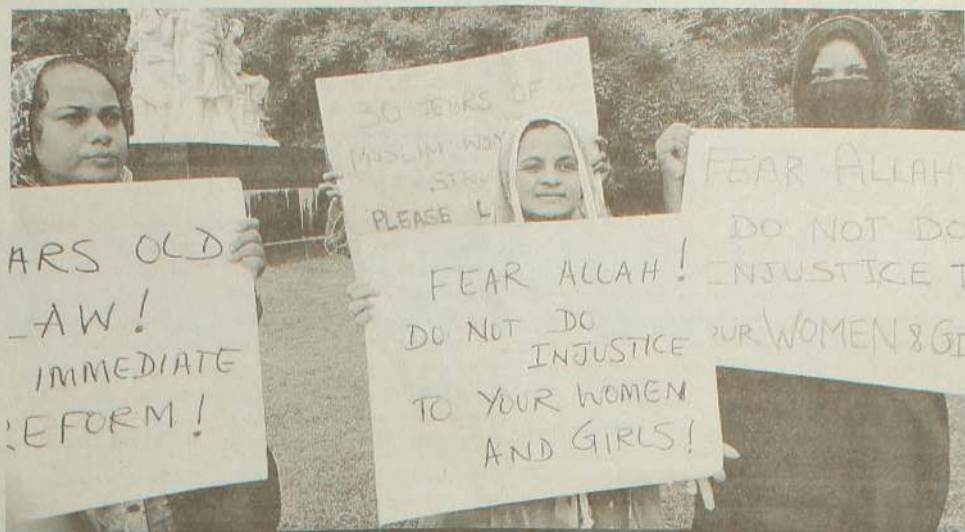 ARS OLD
LAW!
IMMEDIATE
REFORM!
30 YEARS OF
MUSLIM
PLEASE
FEAR ALLAH!
DO NOT DO
INJUSTICE
TO YOUR WOMEN
AND GIRLS!
FEAR ALLAH
DO NOT DO
INJUSTICE T
OUR WOMEN & GI